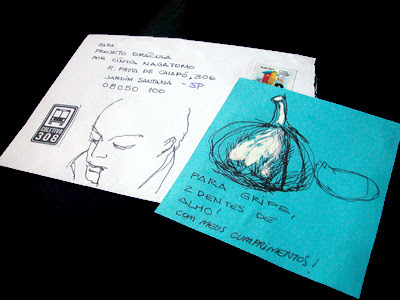 PARA
PROJETO DRÁCULA
POR CÍNTIA NAGATOMO
R. FRUTA DE CAIAPÓ, 306
JARDIM SANTANA - SP
08050 100
COLETIVO
308
PARA GRIPE,
2 DENTES DE
ALHO!
COM MEUS CUMPRIMENTOS!